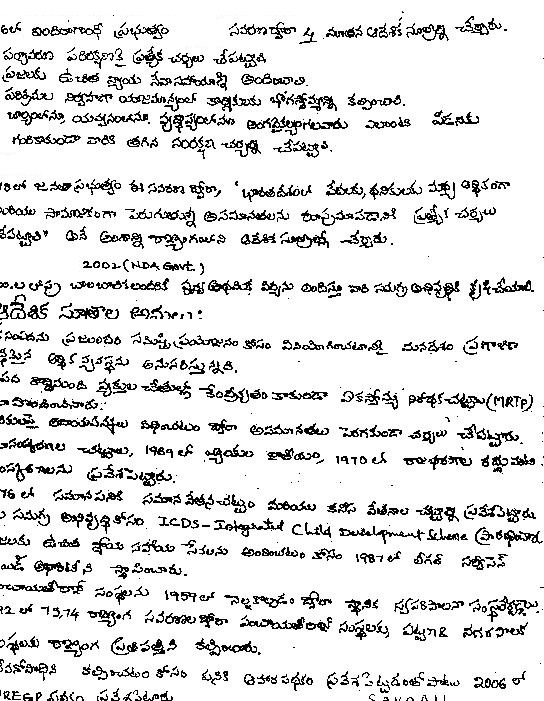 6లో ఇందిరాగాంధీ ప్రభుత్వం సవరణ ద్వారా 4 నూతన ఆదేశిక సూత్రాల్ని చేర్చారు.
పర్యావరణ పరిరక్షణకై ప్రత్యేక చర్యలు చేపట్టాలి
ప్రజలకు ఉచిత న్యాయ సేవా సహాయాన్ని అందించాలి.
పరిశ్రమల నిర్వహణా యాజమాన్యంలో కార్మికులకు భాగస్వామ్యాన్ని కల్పించాలి.
బాల్యంలోను, యవ్వనంలోను, వృద్ధాప్యంలోను అంగవైకల్యంగలవారు ఎలాంటి పీడనకు
గురికాకుండా వారికి తగిన సంరక్షణ చర్యల్ని చేపట్టాలి.
78లో జనతా ప్రభుత్వం ఈ సవరణ ద్వారా, "భారతదేశంలో పేదలకు, ధనికులకు మధ్య ఆర్థికంగా
మరియు సామాజికంగా పెరుగుతున్న అసమానతలను రూపుమాపడానికి ప్రత్యేక చర్యలు
చేపట్టాలి" అనే అంశాన్ని రాజ్యాంగంలోని ఆదేశిక సూత్రాల్లో చేర్చారు.
2002 (NDA Govt.)
సం.ల లోపు బాలబాలికలందరికీ పూర్వ ప్రాథమిక విద్యను అందిస్తూ వారి సమగ్ర అభివృద్ధికి కృషి చేయాలి.
ఆదేశిక సూత్రాల అమలు:
సంపదను ప్రజలందరి సమిష్టి ప్రయోజనం కోసం వినియోగించటానికై మనదేశం ప్రణాళికా
ఆర్థిక వ్యవస్థను అనుసరిస్తున్నది.
సంపద కొద్దిమంది వ్యక్తుల చేతుల్లో కేంద్రీకృతం కాకుండా ఏకస్వామ్య నిరోధక చట్టాల్ని (MRTP)
రూపొందించినారు.
ధనికులపై ఆదాయపన్నులు విధించటం ద్వారా అసమానతలు పెరగకుండా చర్యలు చేపట్టారు.
భూసంస్కరణల చట్టాలు, 1969లో బ్యాంకుల జాతీయం, 1970లో రాజభరణాల రద్దు వంటి
సంస్కరణలను ప్రవేశపెట్టారు.
76లో సమాన పనికి సమాన వేతన చట్టం మరియు కనీస వేతనాల చట్టాల్ని ప్రవేశపెట్టారు
సమగ్ర అభివృద్ధి కోసం ICDS - Integrated Child Development Scheme ప్రారంభించారు
ప్రజలకు ఉచిత న్యాయ సహాయ సేవలను అందించటం కోసం 1987లో లీగల్ సర్వీసెస్
స్థాపించారు.
పంచాయతీరాజ్ సంస్థలను 1959లో నెలకొల్పడం ద్వారా స్థానిక స్వపరిపాలనా సంస్థలేర్పడ్డాయి.
92లో 73,74 రాజ్యాంగ సవరణల ద్వారా పంచాయతీరాజ్ సంస్థలకు పట్టణ & నగరపాలక
సంస్థలకు రాజ్యాంగ ప్రతిపత్తిని కల్పించారు.
జీవనోపాధిని కల్పించటం కోసం పనికి ఆహార పథకం ప్రవేశపెట్టడంతోపాటు 2006లో
NREGP పథకం ప్రవేశపెట్టారు.